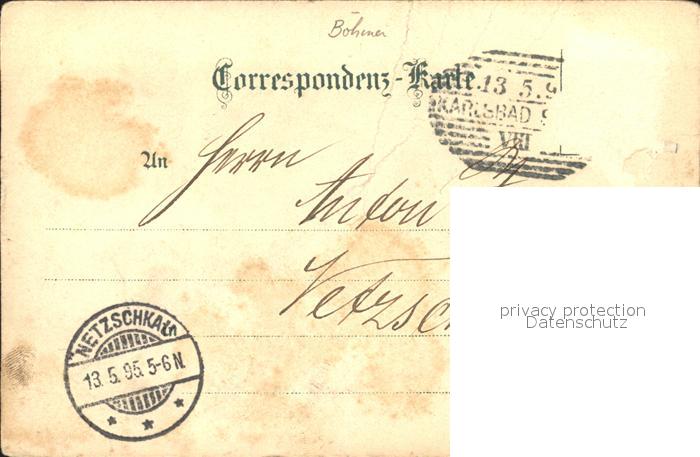 Böhmen
Correspondenz-Karte.
13 5.9
KARLSBAD
VIII
An Herrn
Anton
Netzsch
privacy protection
Datenschutz
NETZSCHKAU
13. 5. 95. 5-6 N.